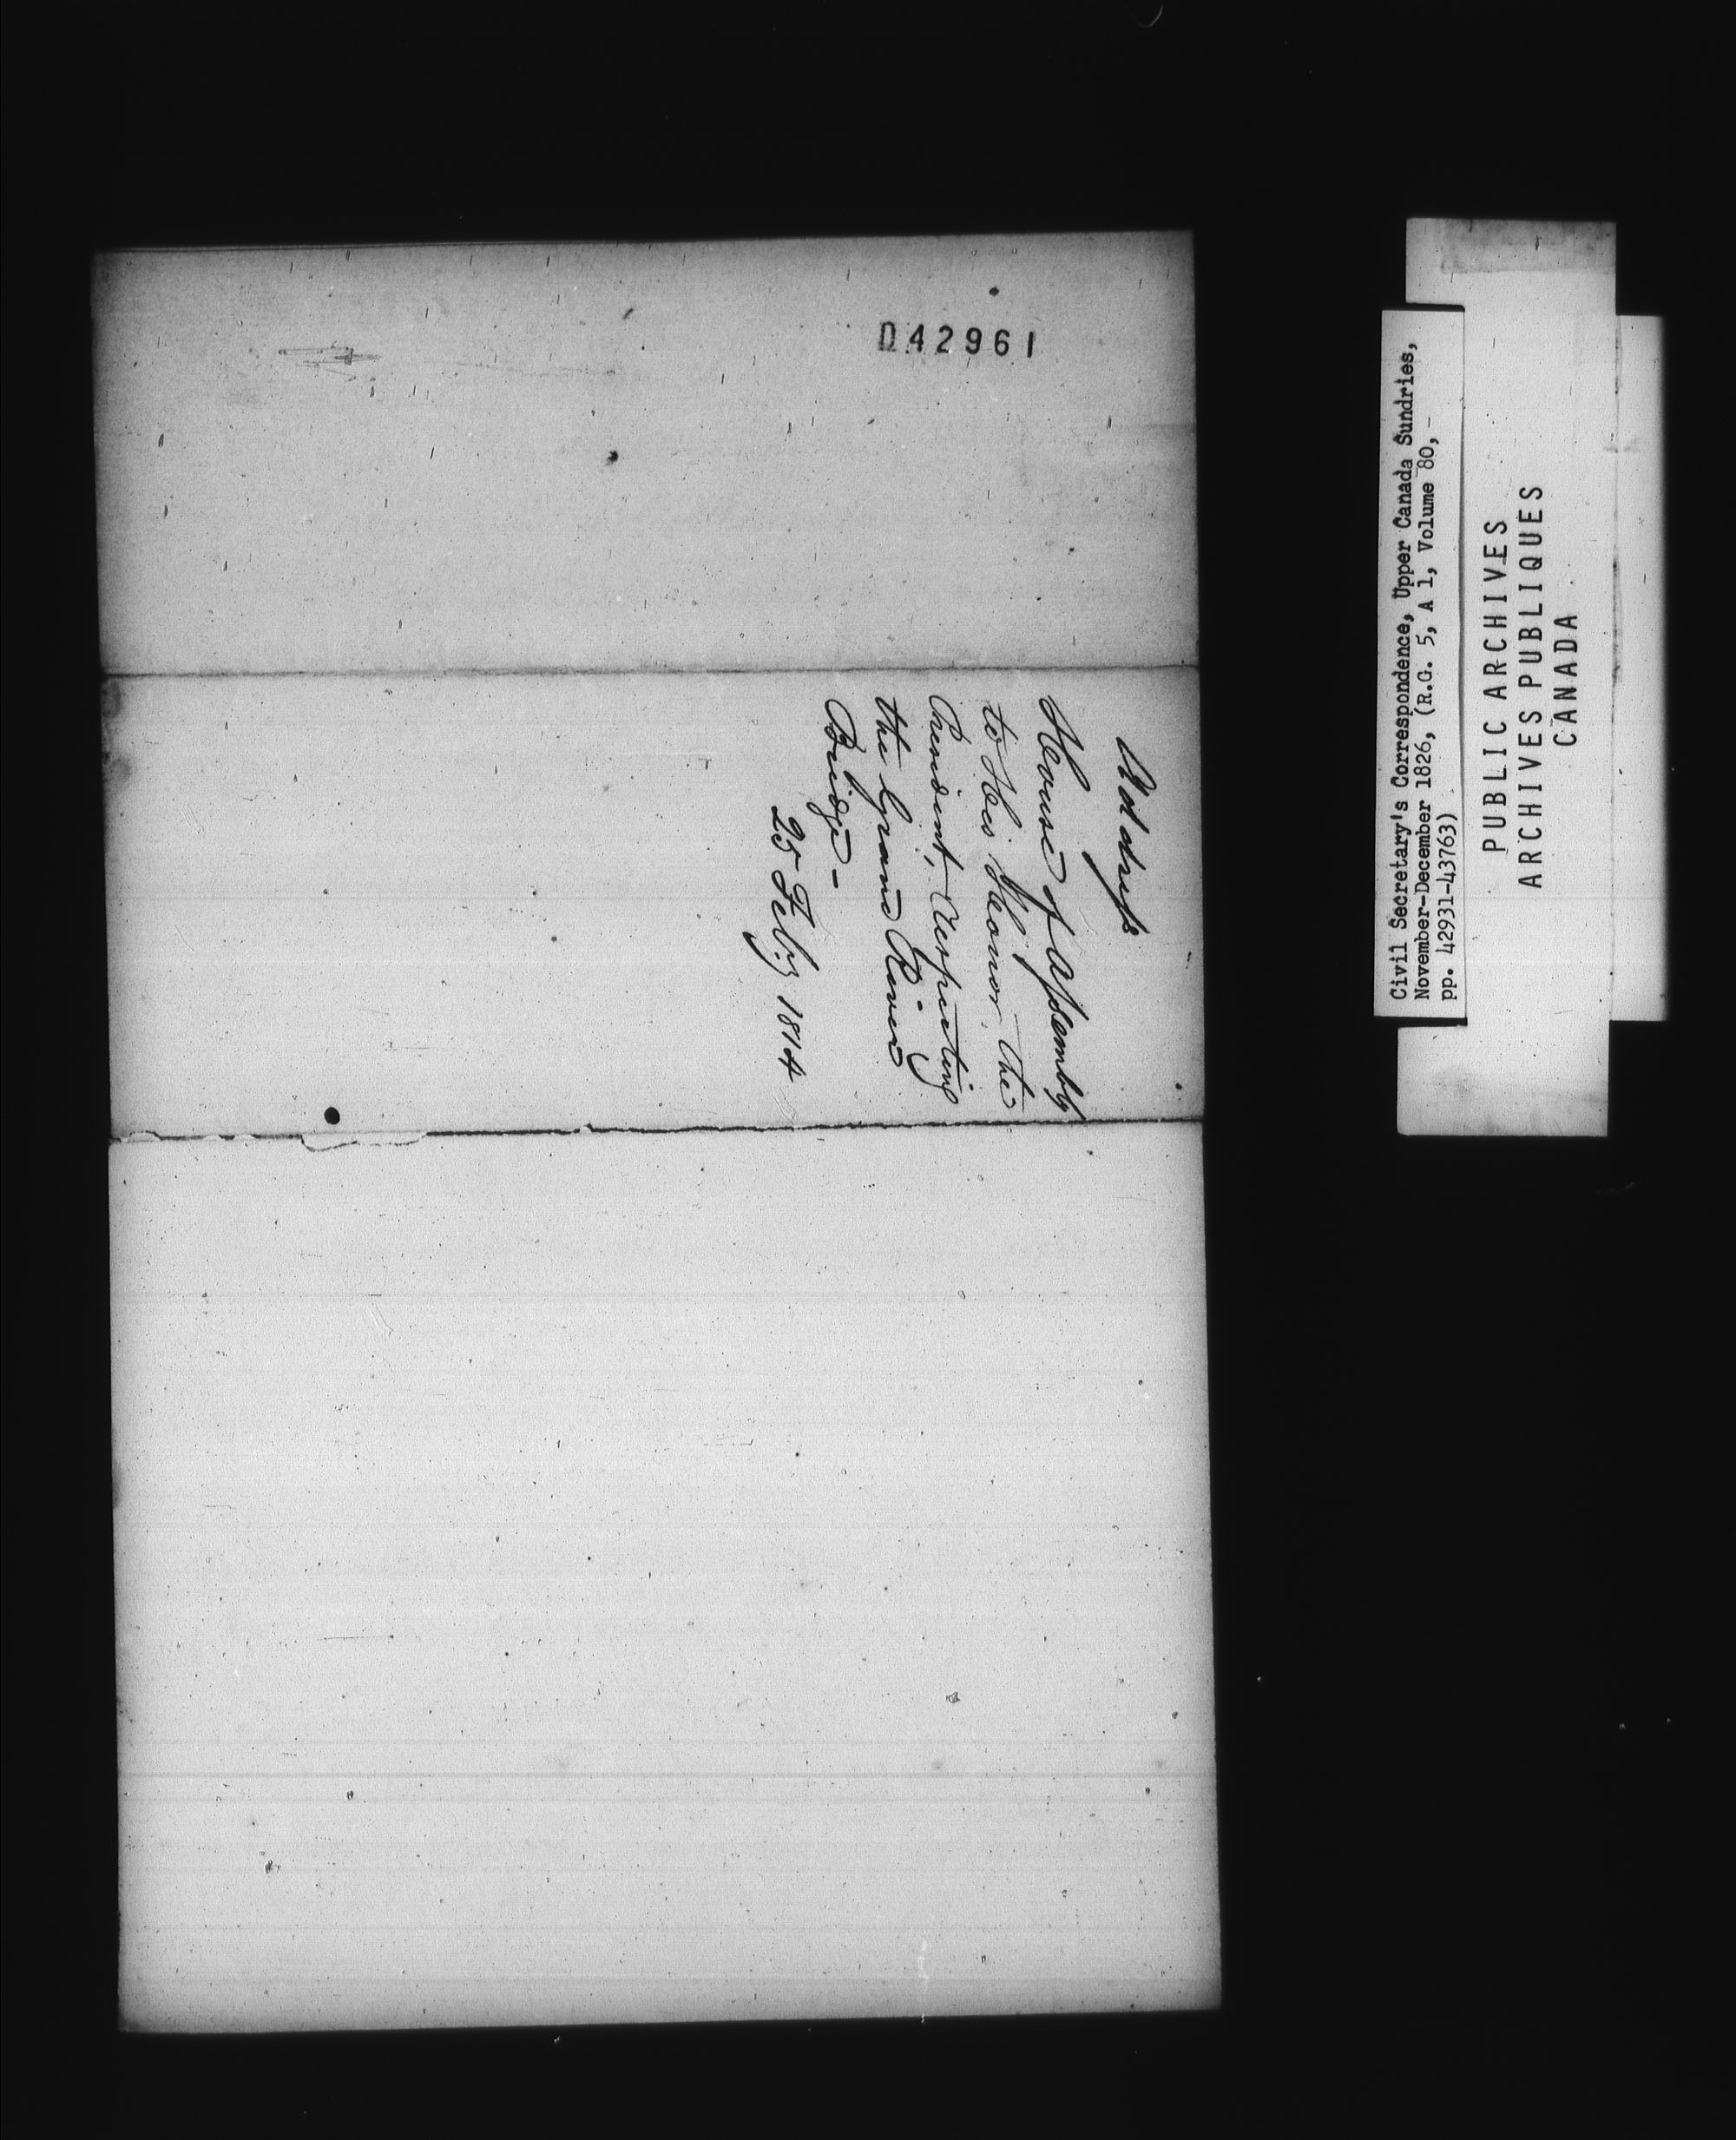 042961
Address
House of Assembly
to His Honor, the
President, Respecting
the Grand River
Bridge -
25 Feby 1814
Civil Secretary's Correspondence, Upper Canada Sundries,
November-December 1826, (R.G. 5, A 1, Volume 80,
pp. 42931-43763)
PUBLIC ARCHIVES
ARCHIVES PUBLIQUES
CANADA